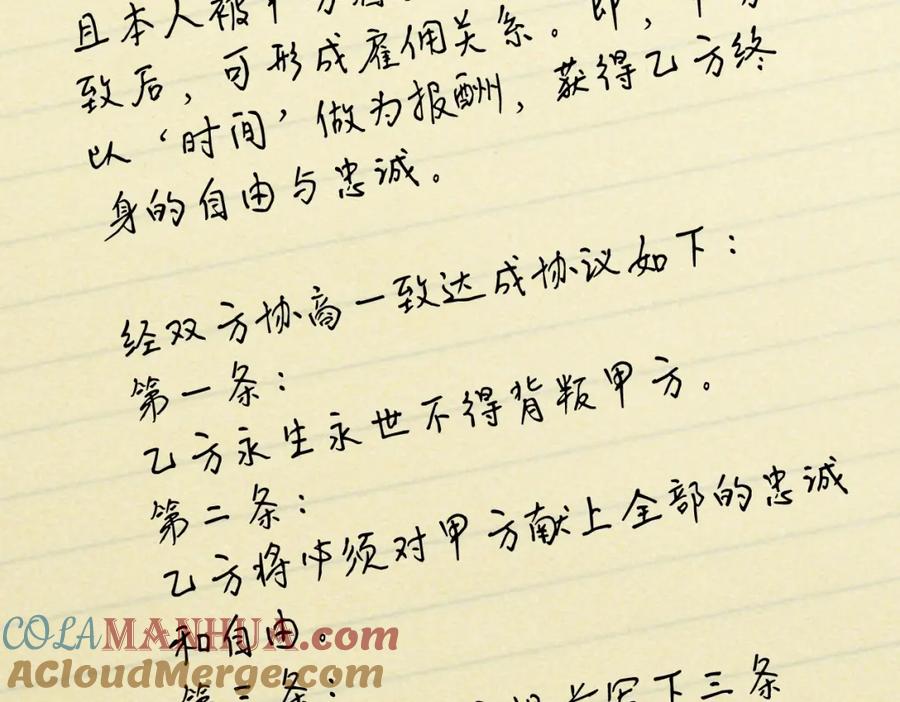 且本人被甲方
致后，可形成雇佣关系。即，甲方
以‘时间’做为报酬，获得乙方终
身的自由与忠诚。
经双方协商一致达成协议如下：
第一条：
乙方永生永世不得背叛甲方。
第二条：
乙方将必须对甲方献上全部的忠诚
和自由。
第三条：
下三条
COLAMANHUA.com
ACloudMerge.com